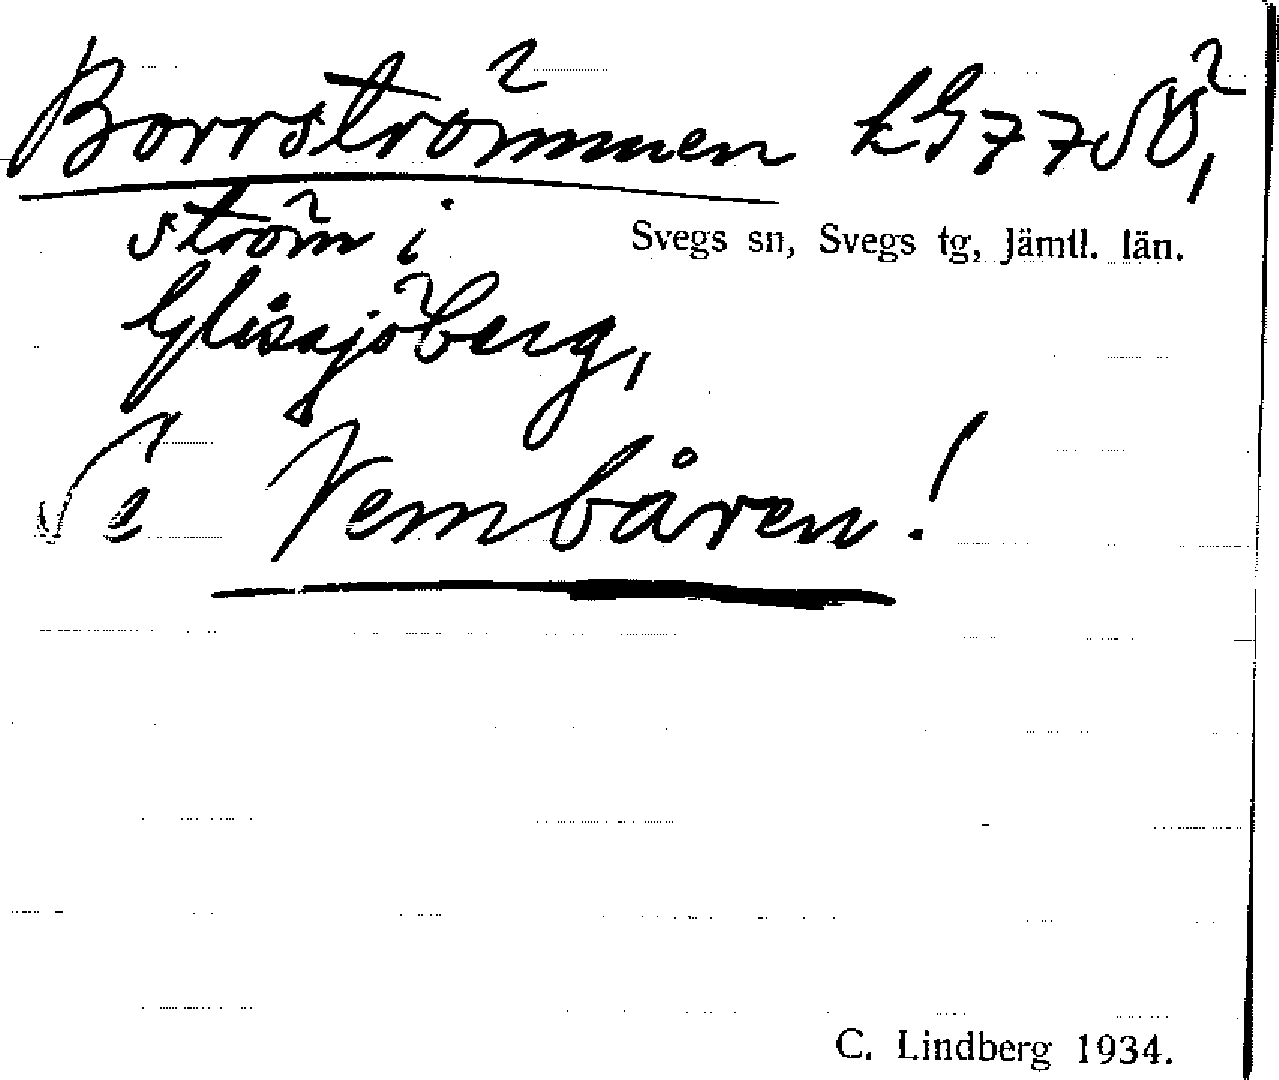 Borrströmmen kG77SÖ,
ström i
Svegs sn, Svegs tg, Jämtl. län.
Glissjöberg,
Se Vembåren!
C. Lindberg 1934.